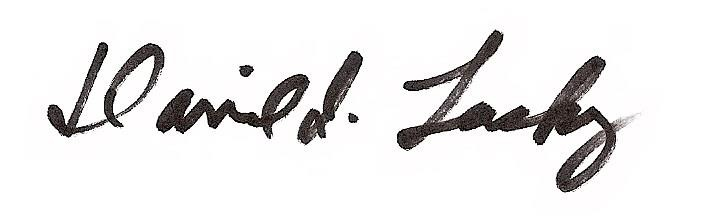 David. Lasky